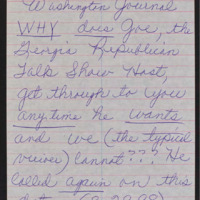 Washington Journal
WHY does Joe, the
Georgia Republican
Talk Show Host,
get through to you
anytime he wants
and we (the typical
viewer) cannot??? He
called again on this